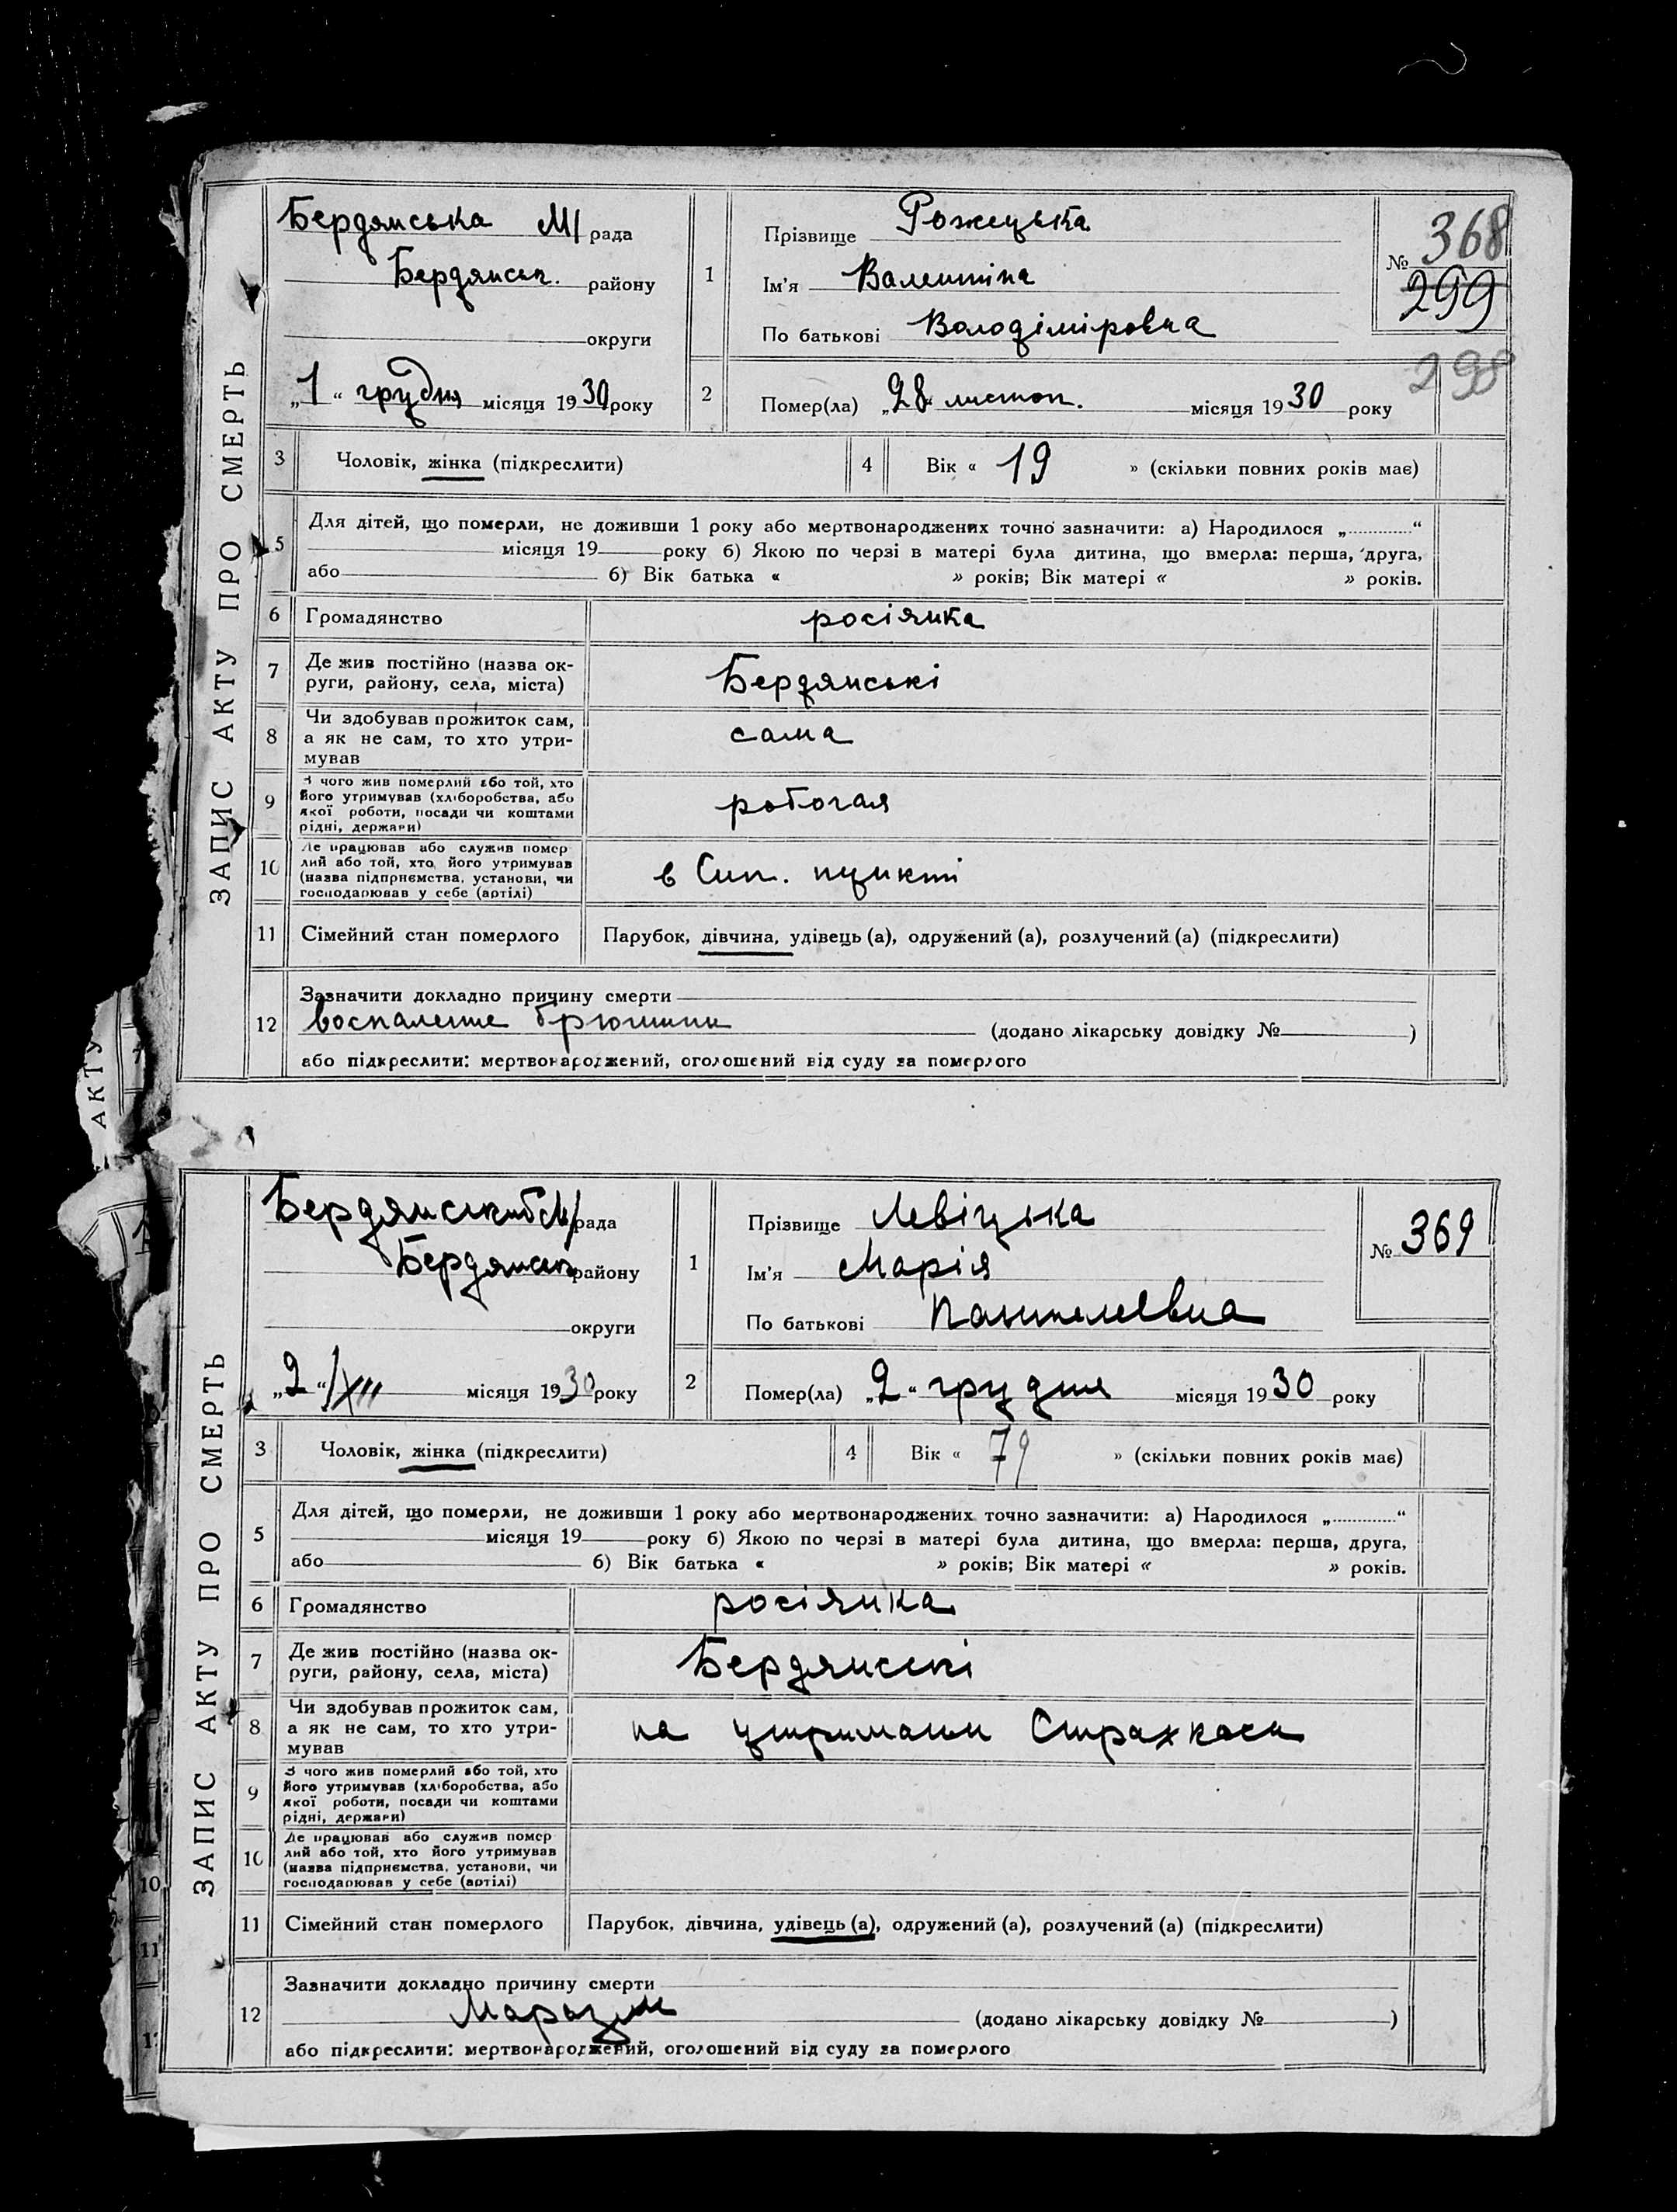 ЗАПИС АКТУ ПРО СМЕРТЬ
Бердянська М/рада
Бердянськ. району
округи
„1“ грудня місяця 1930 року
1
Прізвище Рожецька
Ім'я Валентіна
По батькові Володіміровна
№ 368
299
298
2
Помер(ла) „28“ листоп. місяця 1930 року
3
Чоловік, жінка (підкреслити)
4
Вік « 19 » (скільки повних років має)
5
Для дітей, що померли, не доживши 1 року або мертвонароджених точно зазначити: а) Народилося „............“
місяця 19 року б) Якою по черзі в матері була дитина, що вмерла: перша, друга,
або б) Вік батька « » років; Вік матері « » років.
6
Громадянство росіянка
7
Де жив постійно (назва ок-
руги, району, села, міста)
Бердянські
8
Чи здобував прожиток сам,
а як не сам, то хто утри-
мував
сама
9
З чого жив померлий або той, хто
його утримував (хліборобства, або
якої роботи, посади чи коштами
рідні, держави)
робочая
10
Де працював або служив помер
лий або той, хто його утримував
(назва підприємства, установи, чи
господарював у себе (артілі)
в Сип. пункті
11
Сімейний стан померлого
Парубок, дівчина, удівець (а), одружений (а), розлучений (а) (підкреслити)
12
Зазначити докладно причину смерти
воспаление брюшини (додано лікарську довідку № )
або підкреслити: мертвонароджений, оголошений від суду за померлого
АКТУ
ЗАПИС АКТУ ПРО СМЕРТЬ
М/рада
Бердянськ району
округи
„2“/XII місяця 1930 року
1
Прізвище Левіцька
Ім'я Марія
По батькові
№ 369
2
Помер(ла) „2“ грудня місяця 1930 року
3
Чоловік, жінка (підкреслити)
4
Вік « 79 » (скільки повних років має)
5
Для дітей, що померли, не доживши 1 року або мертвонароджених точно зазначити: а) Народилося „............“
місяця 19 року б) Якою по черзі в матері була дитина, що вмерла: перша, друга,
або б) Вік батька « » років; Вік матері « » років.
6
Громадянство росіянка
7
Де жив постійно (назва ок-
руги, району, села, міста)
Бердянські
8
Чи здобував прожиток сам,
а як не сам, то хто утри-
мував
на утримани Страхкаси
9
З чого жив померлий або той, хто
його утримував (хліборобства, або
якої роботи, посади чи коштами
рідні, держави)
10
Де працював або служив помер
лий або той, хто його утримував
(назва підприємства, установи, чи
господарював у себе (артілі)
11
Сімейний стан померлого
Парубок, дівчина, удівець (а), одружений (а), розлучений (а) (підкреслити)
12
Зазначити докладно причину смерти
Маразм (додано лікарську довідку № )
або підкреслити: мертвонароджений, оголошений від суду за померлого
10
11